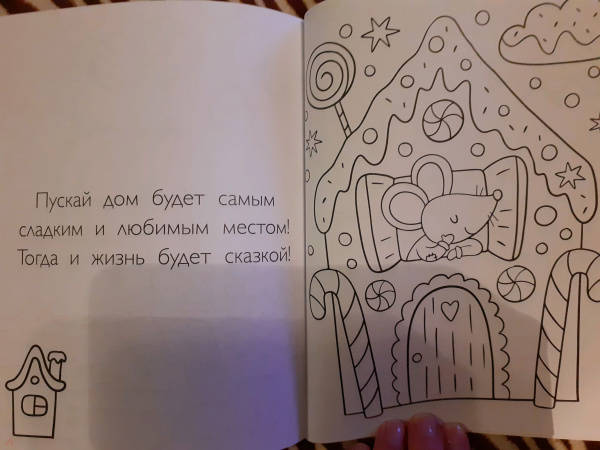 Пускай дом будет самым
сладким и любимым местом!
Тогда и жизнь будет сказкой!